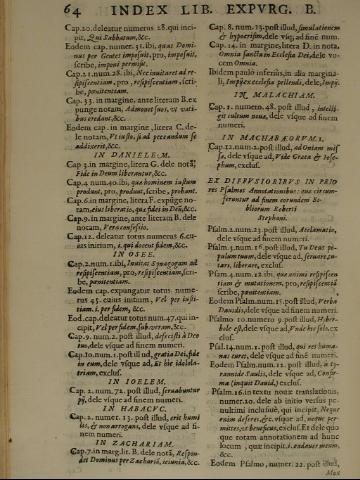 64 INDEX LIB. EXPVRG. B.
Cap. 20. deleatur numerus 28. qui inci-
pit, Qui Sabbatum, &c.
Eodem cap. numer. 31. ibi, quas Domi-
nus per Gentes imposuit, pro, imposuit,
scribe, imponi permisit.
Cap. 21. num. 28. ibi, Nec inuitaret ad re-
spiscentiam, pro, respiscentiam, scri-
be, pœnitentiam.
Cap. 33. in margine, ante literam B. ex
punge notam,
Eodem cap. in margine, litera C. de-
le notam,
addixerit, &c.
IN DANIELEM.
Cap. 3. in margine, litera G. dele notã,
Fide in Deum liberantur, &c.
Cap. 4. num. 40. ibi, quæ hominem iustum
produnt, pro, produnt, scribe, probant.
Cap. 6. in margine, litera F. expũge no-
tam, eius liberatio, quæ fides in Deũ, &c.
Cap. 9. in margine, ante literam B. dele
notam, Vera confessio.
Cap. 12. deleatur totus numerus 6. cu-
ius initium, i. qui docent fidem, &c.
IN OSEE.
Cap. 2. num. 1. ibi, Inuitat Synagogam ad
respiscentiam, pro, respiscentiam, scri-
be, pœnitentiam.
Eodem cap. expungatur totus nume-
rus 45. cuius initium, Vel per iusti-
tiam. i. per fidem, &c.
Eod. cap. deleatur totus num. 47. qui in-
cipit, Vel per fidem, sub certam, &c.
Cap. 9. num. 2. post illud, defecisti à Deo
tuo, dele vsque ad finem numeri.
Cap. 10. num. 1. post illud, gratia Dei, fide
in eum, dele vsque ad, Et hic idolola-
triam, exclus.
IN IOELEM.
Cap. 2. num. 72. post illud, seruabuntur
dele vsque ad finem numeri.
IN HABACVC.
Cap. 2. numer. 13. post illud, erit humi
lis, & non arrogans, dele vsque ad fi-
nem numeri.
IN ZACHARIAM.
Cap. 7. in marg. lit. B. dele notã, Respon-
det Dominus per Zachariã, ieiunia, &c.
Cap. 8. num. 23. post illud, simulationem
& hypocrisim, dele vsq; ad finẽ num.
Cap. 14. in margine, litera D. in nota,
Omnia sancta in Ecclesia Dei, dele vo-
cem Omnia.
Ibidem paulò inferiùs, in alia margina-
li, Impij ex ecclesia pellendi, dele, Impij.
IN MALACHIAM.
Cap. 1. numero. 48. post illud, intelli-
git cultum nouæ, dele vsque ad finem
numeri.
IN MACHABÆORVM 1.
Cap. 12. num. 2. post illud, ad Oniam mis
sa, dele vsque ad, Vide Græca & Iose-
phum, exclus.
EX DIFFVSIORIBVS IN PRIO
res Psalmos Annotationibus: quæ circum-
feruntur ad finem eorundem Bi-
bliorum Roberti
Stephani.
Psalm. 2. num. 23. post illud, Acclamatio,
dele vsque ad finem numeri.
Psalm. 3. num. 16. post illud, Tu Deus po-
pulum tuum, dele vsque ad, seruare, tu-
tari, liberare, exclus.
Psalm. 4. num. 12. ibi, quæ animi respiscen
tiam & mutationem, pro, respiscentiã
scribe, pœnitentiam.
Eodem Psalm. num. 15. post illud, Verba
Dauidis, dele vsque ad finem numeri.
Psalmo 10. numero 9. post illud, Hyper-
bole est, dele vsque ad, Vnde hæc sola, ex
clus.
Psal. 14. num. 1. post illud, qui res huma-
nas curet, dele vsque ad finẽ numeri.
Eodem Psalm. num. 12. post illud, à ty-
rannide Saulis, dele vsque ad, Confir-
ma (inquit Dauid,) exclus.
Psalm. 16. in textu nouæ translationis,
numer. 10. dele ab initio versus pe-
nultimi inclusiuè, qui incipit, Neque
enim deseres, & c. vsque ad, neque per-
mittes, exclus. Et dele quo
que totam annotationem ad hunc
locum, quæ incipit, i. euadere meum,
&c.
Eodem Psalmo, numer. 22. post illud,